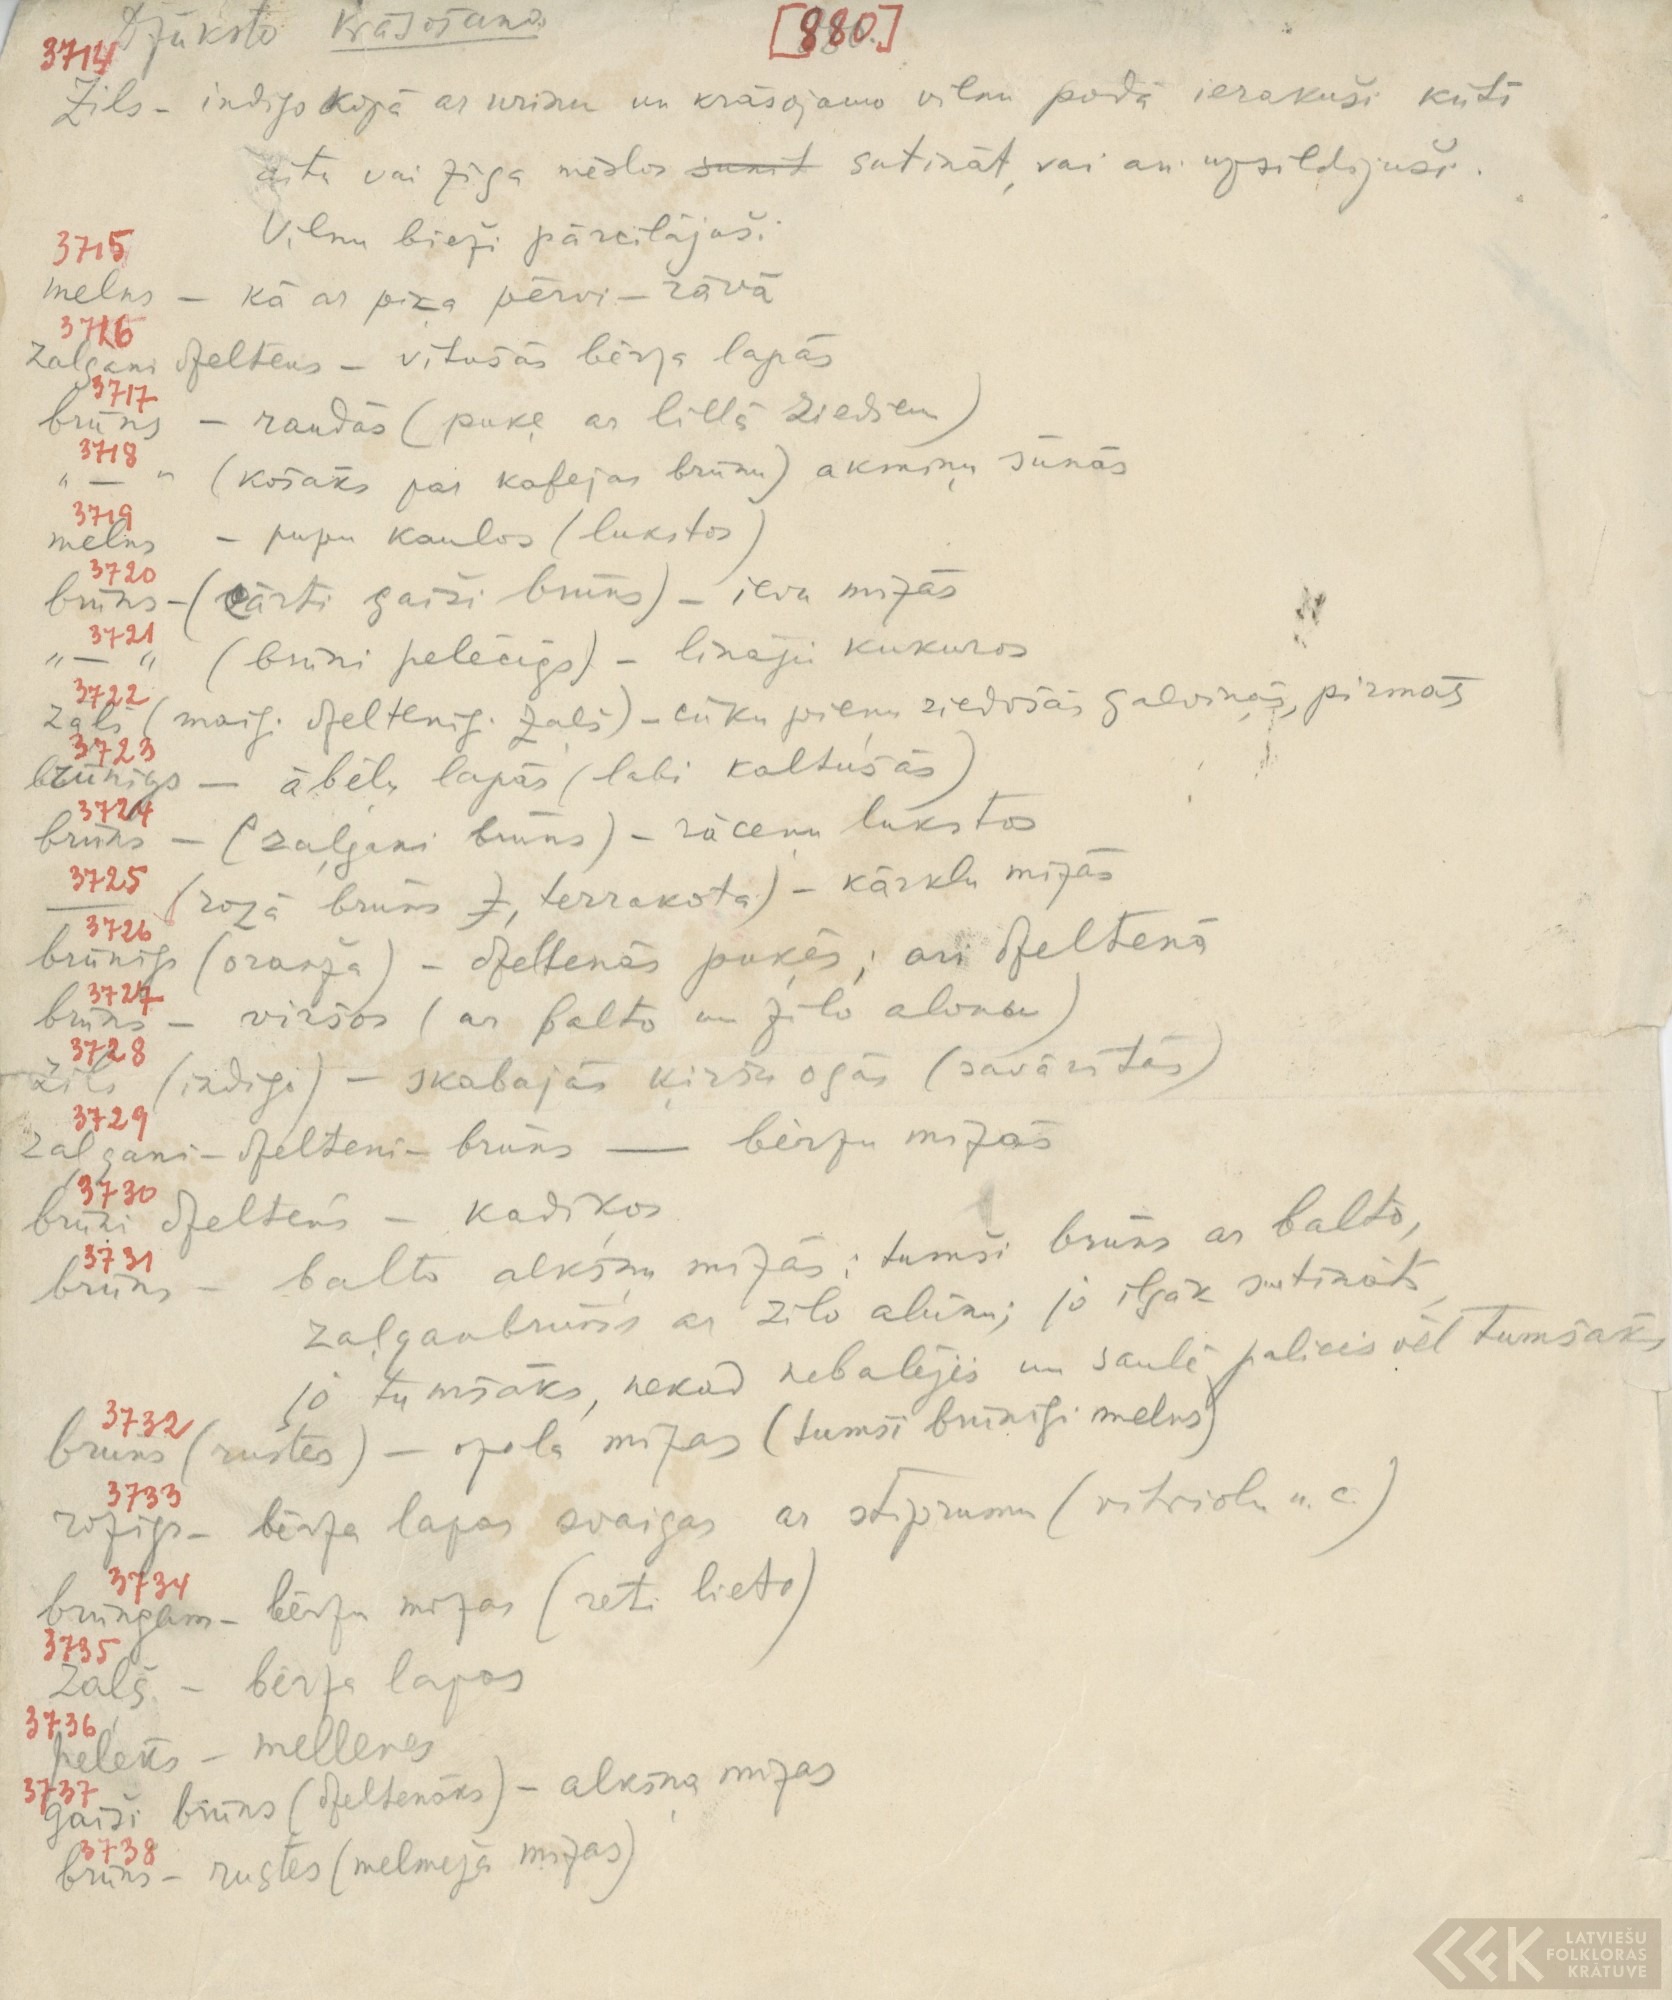 Džūkstē Krāsošana [880.]
3714
Zils - indigo kopā ar urinu un krāsojamo vilnu podā ierakuši kūtī
aitu vai zirga mēslos sunit sutināt, vai arī uzsildījuši.
Vilnu bieži pārcilājuši.
3715
melns - kā ar piķa pērvi - rāvā
3716
zaļgani dzeltens - vītušās bērza lapās
3717
brūns - raudās (puķe ar lillā ziediem)
3718
" — " (košāks par kafejas brūnu) akmiņu sūnās
3719
melns - pupu kaulos (lukstos)
3720
brūns - (sārti gaiši brūns) - ievu mizās
3721
" — " (brūni pelēcīgs) - lināju kukuros
3722
zaļš (maig. dzeltenīg. zaļš) - cūku pieņu ziedošās galviņās, pirmās
3723
brūnigs — ābeļu lapās (labi kaltušās)
3724
brūns - (zaļgani brūns) - rāceņu lukstos
3725
— (rozā brūns, terrakota) - kārklu mizās
3726
brūnigs (oranža) - dzeltenās puķēs; arī dzeltenā
3727
brūns - viršos (ar balto un zilo alonu)
3728
Zils (indigo) - skabajās ķiršu ogās (savārītās)
3729
zaļgani-dzelteni-brūns — bērzu mizās
3730
brūni dzeltens - kadiķos
3731
brūns - balto alkšņu mizās; tumši brūns ar balto,
zaļganbrūns ar zilo alūnu; jo ilgāk sutināts,
jo tumšāks, nekad nebalējis un saulē palicis vēl tumšāks
3732
brūns (rustēs) - ozola mizas (tumši brūnigi melns)
3733
rozīgs - bērza lapas svaigas ar stiprumu (vitriolu u.c.)
3734
brūngan - bērzu mizas (reti lieto)
3735
zaļš - bērza lapas
3736
pelēks - mellenes
3737
gaiši brūns (dzeltenāks) - alkšņa mizas
3738
brūns - rustēs (melnejā mizas)
LATVIEŠU
FOLKLORAS
KRĀTUVE